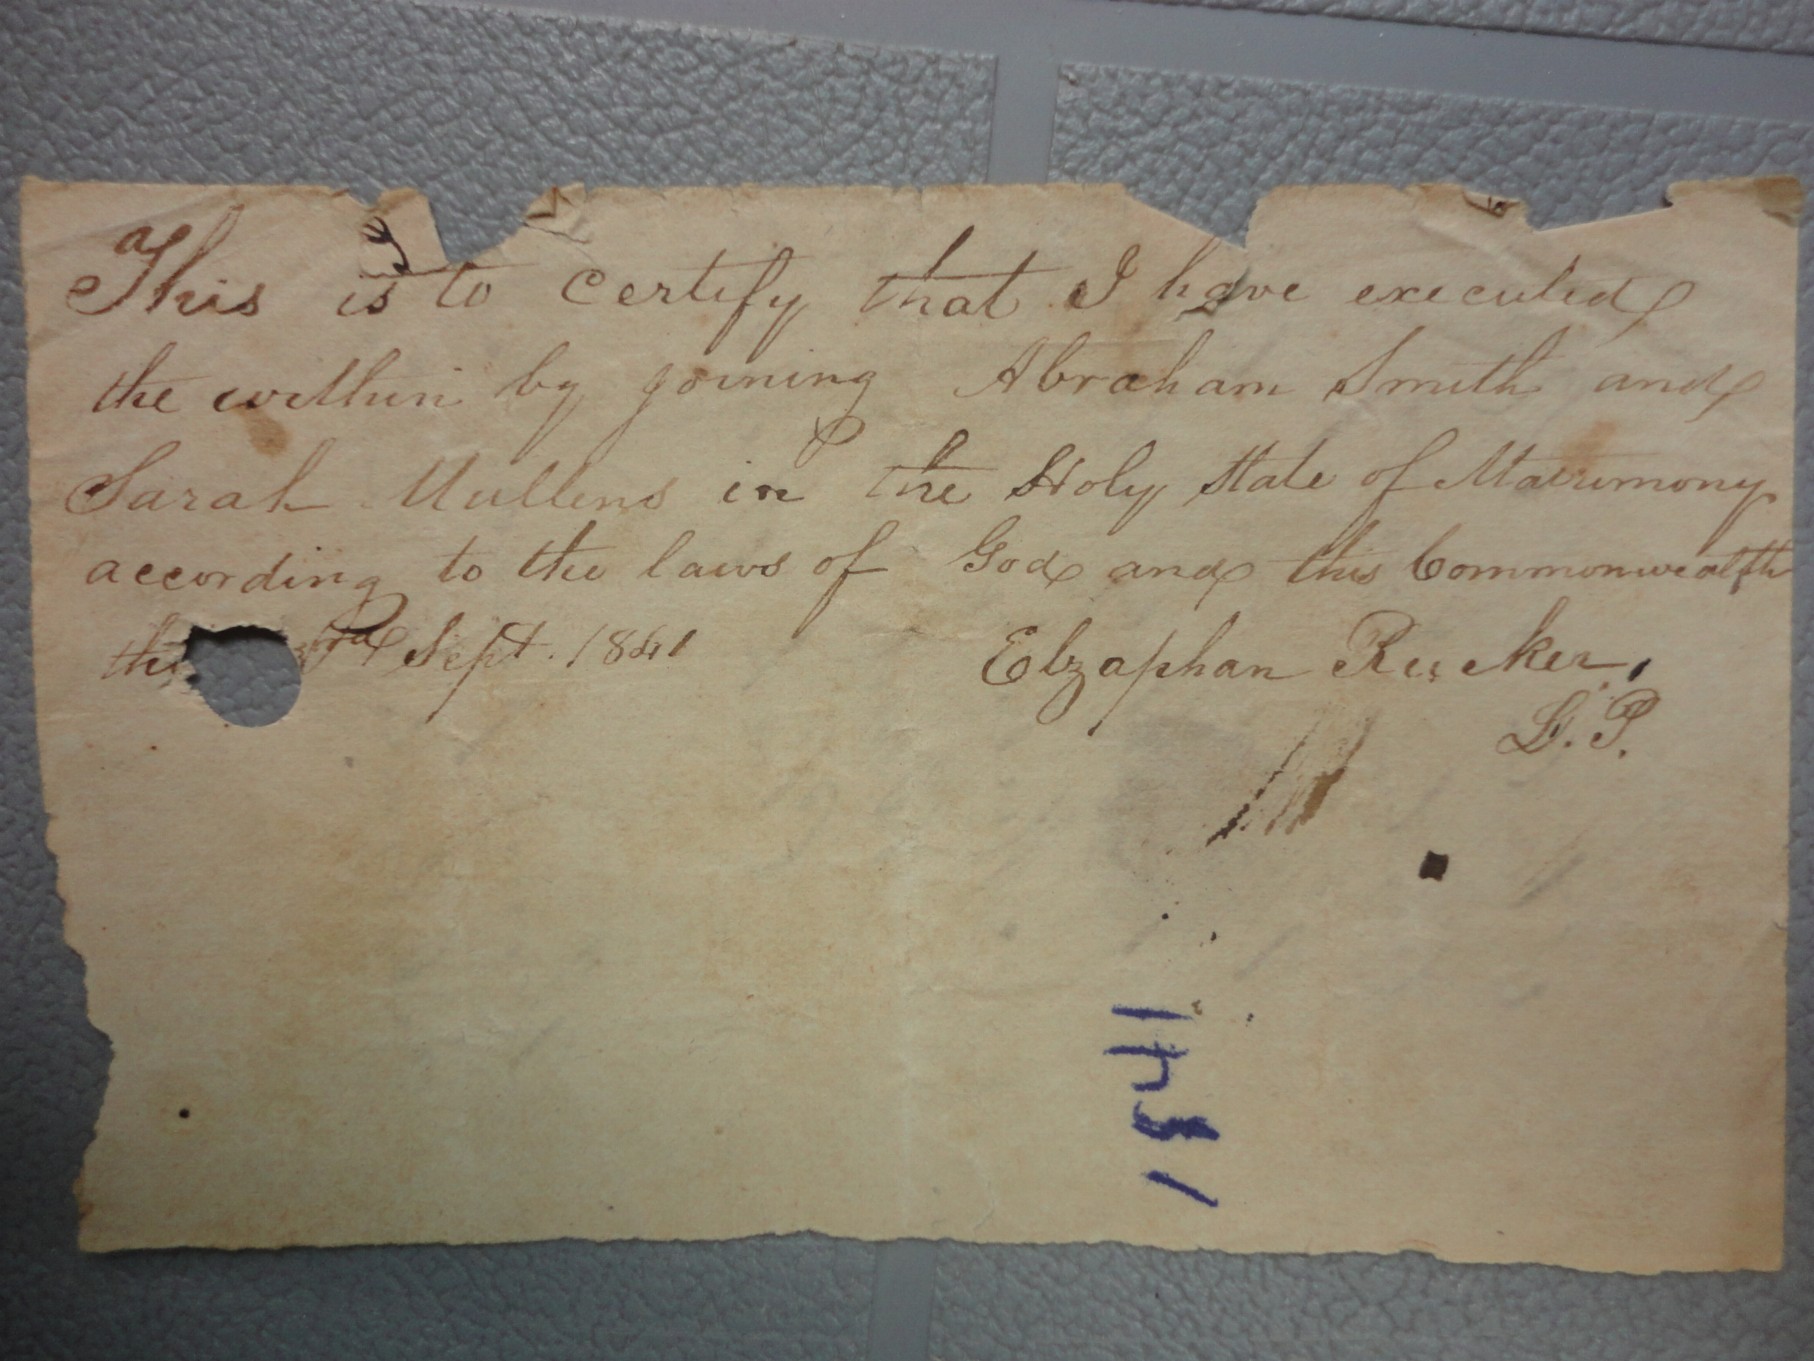 This is to certify that I have executed
the within by joining Abraham Smith and
Sarah Mullens in the Holy State of Matrimony
according to the laws of God and this Commonwealth
the rd Sept. 1841
Elzaphan Rucker,
L. P.
1841